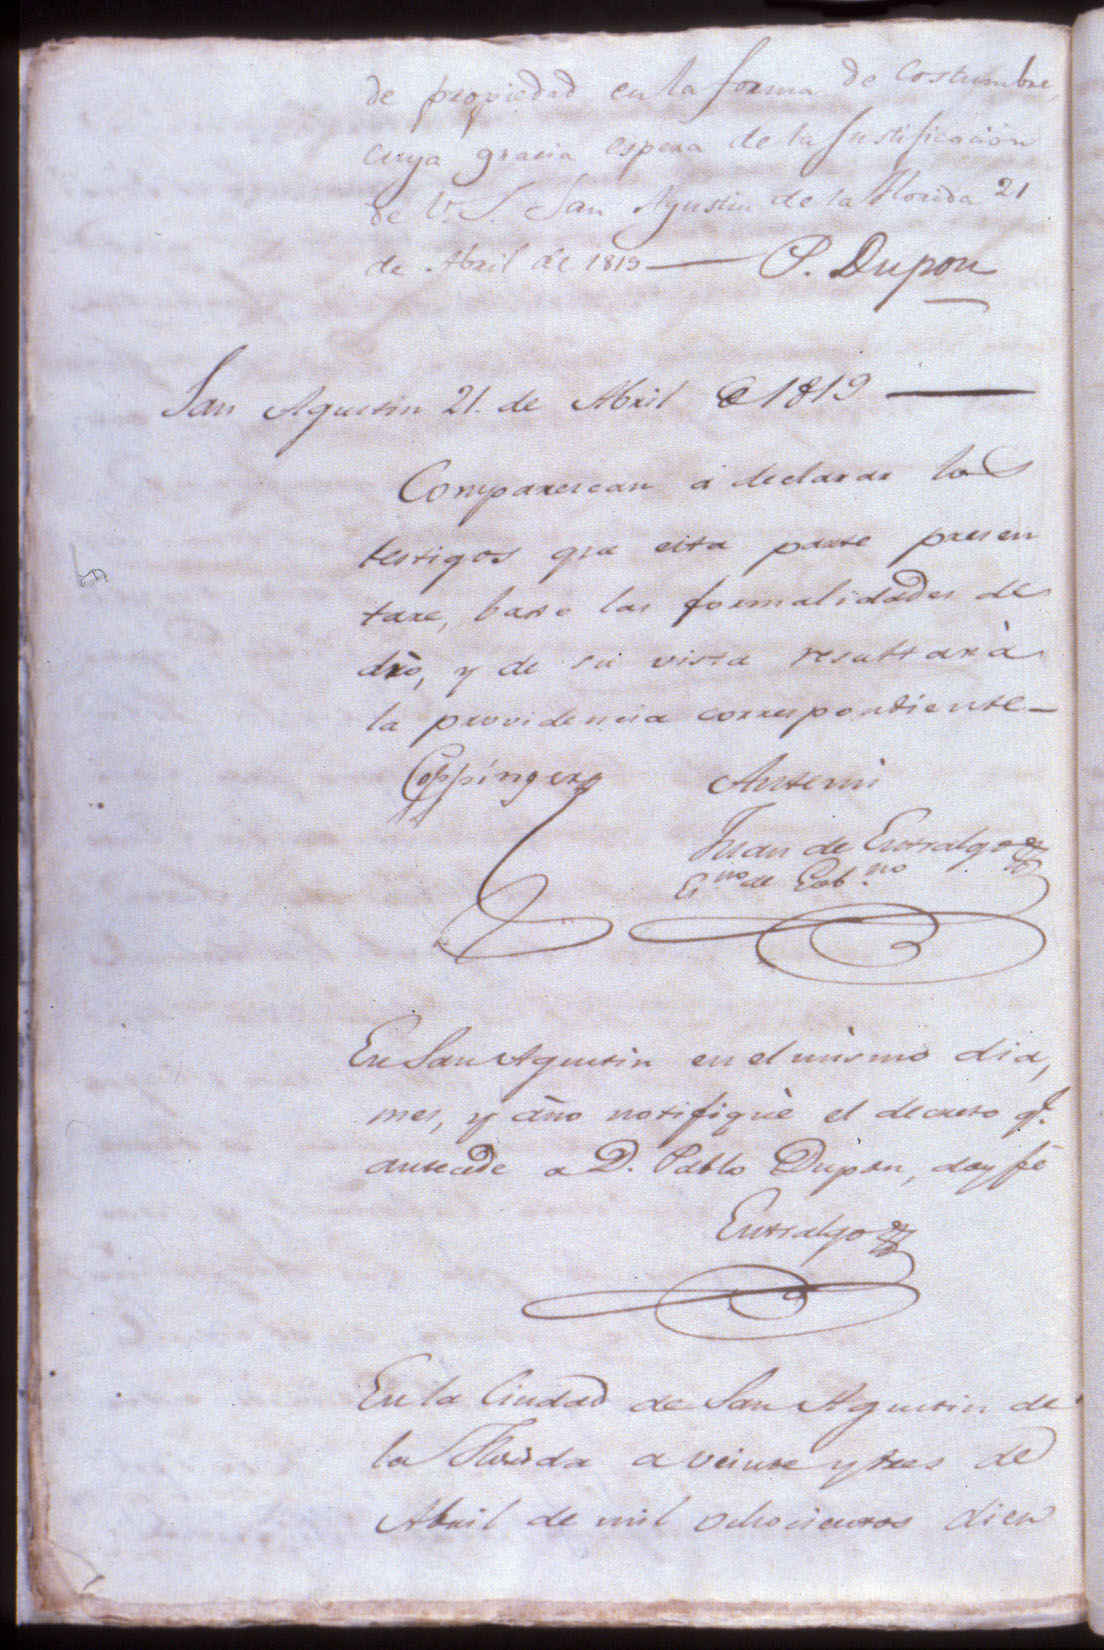 de propiedad en la forma de costumbre,
cuya gracia espera de la Justificación
de V.S. San Agustin de la Florida 21
de Abril de 1819 — P. Dupon
San Agustin 21. de Abril de 1819 —
Comparescan á declarar los
testigos que esta parte presen
tare, baxo las formalidades de
dro, y de su vista resultará
la providencia correspondiente —
Coppinger Antemi
Juan de Entralgo
Esno de Gobno
En San Agustin en el mismo dia,
mes, y año notifiquè el decreto q.
antecede a D. Pablo Dupon, doy fé
Entralgo
En la Ciudad de San Agustin de
la Florida a veinte y tres de
Abril de mil ochocientos diez